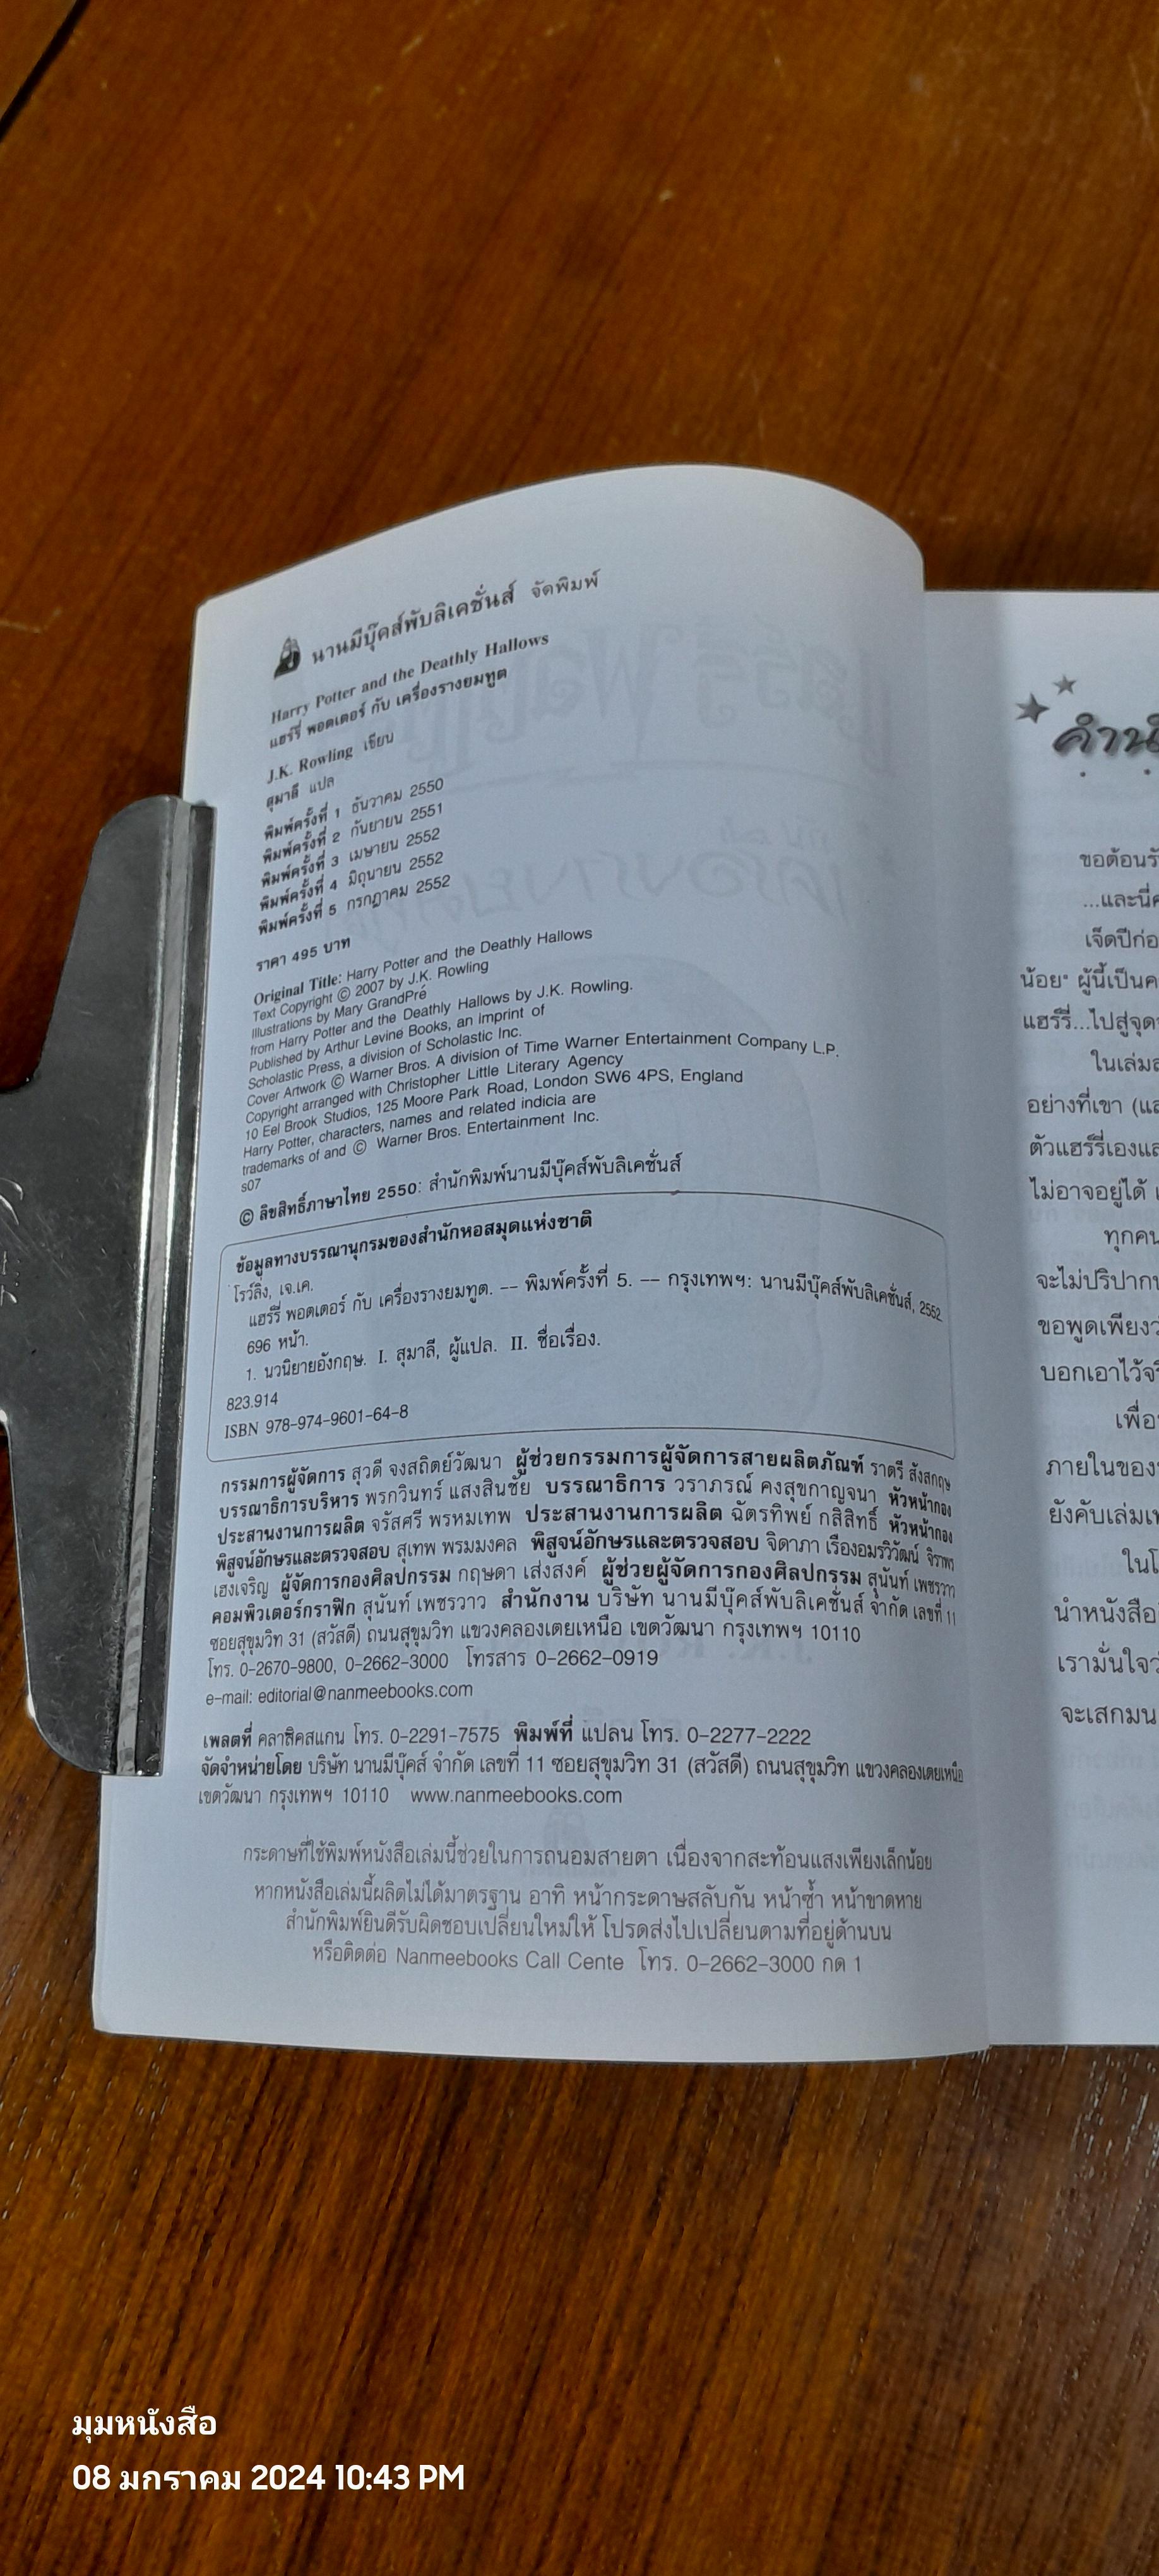 นานมีบุ๊คส์พับลิเคชั่นส์ จัดพิมพ์
Harry Potter and the Deathly Hallows
แฮร์รี่ พอตเตอร์ กับ เครื่องรางยมทูต
J.K. Rowling เขียน
สุมาลี แปล
พิมพ์ครั้งที่ 1 ธันวาคม 2550
พิมพ์ครั้งที่ 2 กันยายน 2551
พิมพ์ครั้งที่ 3 เมษายน 2552
พิมพ์ครั้งที่ 4 มิถุนายน 2552
พิมพ์ครั้งที่ 5 กรกฎาคม 2552
ราคา 495 บาท
Original Title: Harry Potter and the Deathly Hallows
Text Copyright © 2007 by J.K. Rowling
Illustrations by Mary GrandPré
from Harry Potter and the Deathly Hallows by J.K. Rowling.
Published by Arthur Levine Books, an imprint of
Scholastic Press, a division of Scholastic Inc.
Cover Artwork © Warner Bros. A division of Time Warner Entertainment Company L.P.
Copyright arranged with Christopher Little Literary Agency
10 Eel Brook Studios, 125 Moore Park Road, London SW6 4PS, England
Harry Potter, characters, names and related indicia are
trademarks of and © Warner Bros. Entertainment Inc.
s07
© ลิขสิทธิ์ภาษาไทย 2550: สำนักพิมพ์นานมีบุ๊คส์พับลิเคชั่นส์
ข้อมูลทางบรรณานุกรมของสำนักหอสมุดแห่งชาติ
โรว์ลิ่ง, เจ.เค.
แฮร์รี่ พอตเตอร์ กับ เครื่องรางยมทูต. -- พิมพ์ครั้งที่ 5. -- กรุงเทพฯ: นานมีบุ๊คส์พับลิเคชั่นส์, 2552
696 หน้า.
1. นวนิยายอังกฤษ. I. สุมาลี, ผู้แปล. II. ชื่อเรื่อง.
823.914
ISBN 978-974-9601-64-8
กรรมการผู้จัดการ สุวดี จงสถิตย์วัฒนา ผู้ช่วยกรรมการผู้จัดการสายผลิตภัณฑ์ ราตรี สังสกฤษ
บรรณาธิการบริหาร พรกวินทร์ แสงสินชัย บรรณาธิการ วราภรณ์ คงสุขกาญจนา หัวหน้ากอง
ประสานงานการผลิต จรัสศรี พรหมเทพ ประสานงานการผลิต ฉัตรทิพย์ กสิสิทธิ์ หัวหน้ากอง
พิสูจน์อักษรและตรวจสอบ สุเทพ พรมมงคล พิสูจน์อักษรและตรวจสอบ จิดาภา เรืองอมรวิวัฒน์ จิราพร
เฮงเจริญ ผู้จัดการกองศิลปกรรม กฤษดา เส่งสงค์ ผู้ช่วยผู้จัดการกองศิลปกรรม สุนันท์ เพชรวาว
คอมพิวเตอร์กราฟิก สุนันท์ เพชรวาว สำนักงาน บริษัท นานมีบุ๊คส์พับลิเคชั่นส์ จำกัด เลขที่ 11
ซอยสุขุมวิท 31 (สวัสดี) ถนนสุขุมวิท แขวงคลองเตยเหนือ เขตวัฒนา กรุงเทพฯ 10110
โทร. 0-2670-9800, 0-2662-3000 โทรสาร 0-2662-0919
e-mail: editorial@nanmeebooks.com
เพลตที่ คลาสิคสแกน โทร. 0-2291-7575 พิมพ์ที่ แปลน โทร. 0-2277-2222
จัดจำหน่ายโดย บริษัท นานมีบุ๊คส์ จำกัด เลขที่ 11 ซอยสุขุมวิท 31 (สวัสดี) ถนนสุขุมวิท แขวงคลองเตยเหนือ
เขตวัฒนา กรุงเทพฯ 10110 www.nanmeebooks.com
กระดาษที่ใช้พิมพ์หนังสือเล่มนี้ช่วยในการถนอมสายตา เนื่องจากสะท้อนแสงเพียงเล็กน้อย
หากหนังสือเล่มนี้ผลิตไม่ได้มาตรฐาน อาทิ หน้ากระดาษสลับกัน หน้าซ้ำ หน้าขาดหาย
สำนักพิมพ์ยินดีรับผิดชอบเปลี่ยนใหม่ให้ โปรดส่งไปเปลี่ยนตามที่อยู่ด้านบน
หรือติดต่อ Nanmeebooks Call Cente โทร. 0-2662-3000 กด 1
ขอต้อนรั
...และนี่ค
เจ็ดปีก่อ
น้อย" ผู้นี้เป็นค
แฮร์รี่...ไปสู่จุด
ในเล่มส
อย่างที่เขา (แล
ตัวแฮร์รี่เองแล
ไม่อาจอยู่ได้ เ
ทุกคน
จะไม่ปริปาก
ขอพูดเพียงว
บอกเอาไว้จริ
เพื่อ
ภายในของ
ยังคับเล่มเ
ในโ
นำหนังสือ
เรามั่นใจว
จะเสกมน
มุมหนังสือ
08 มกราคม 2024 10:43 PM